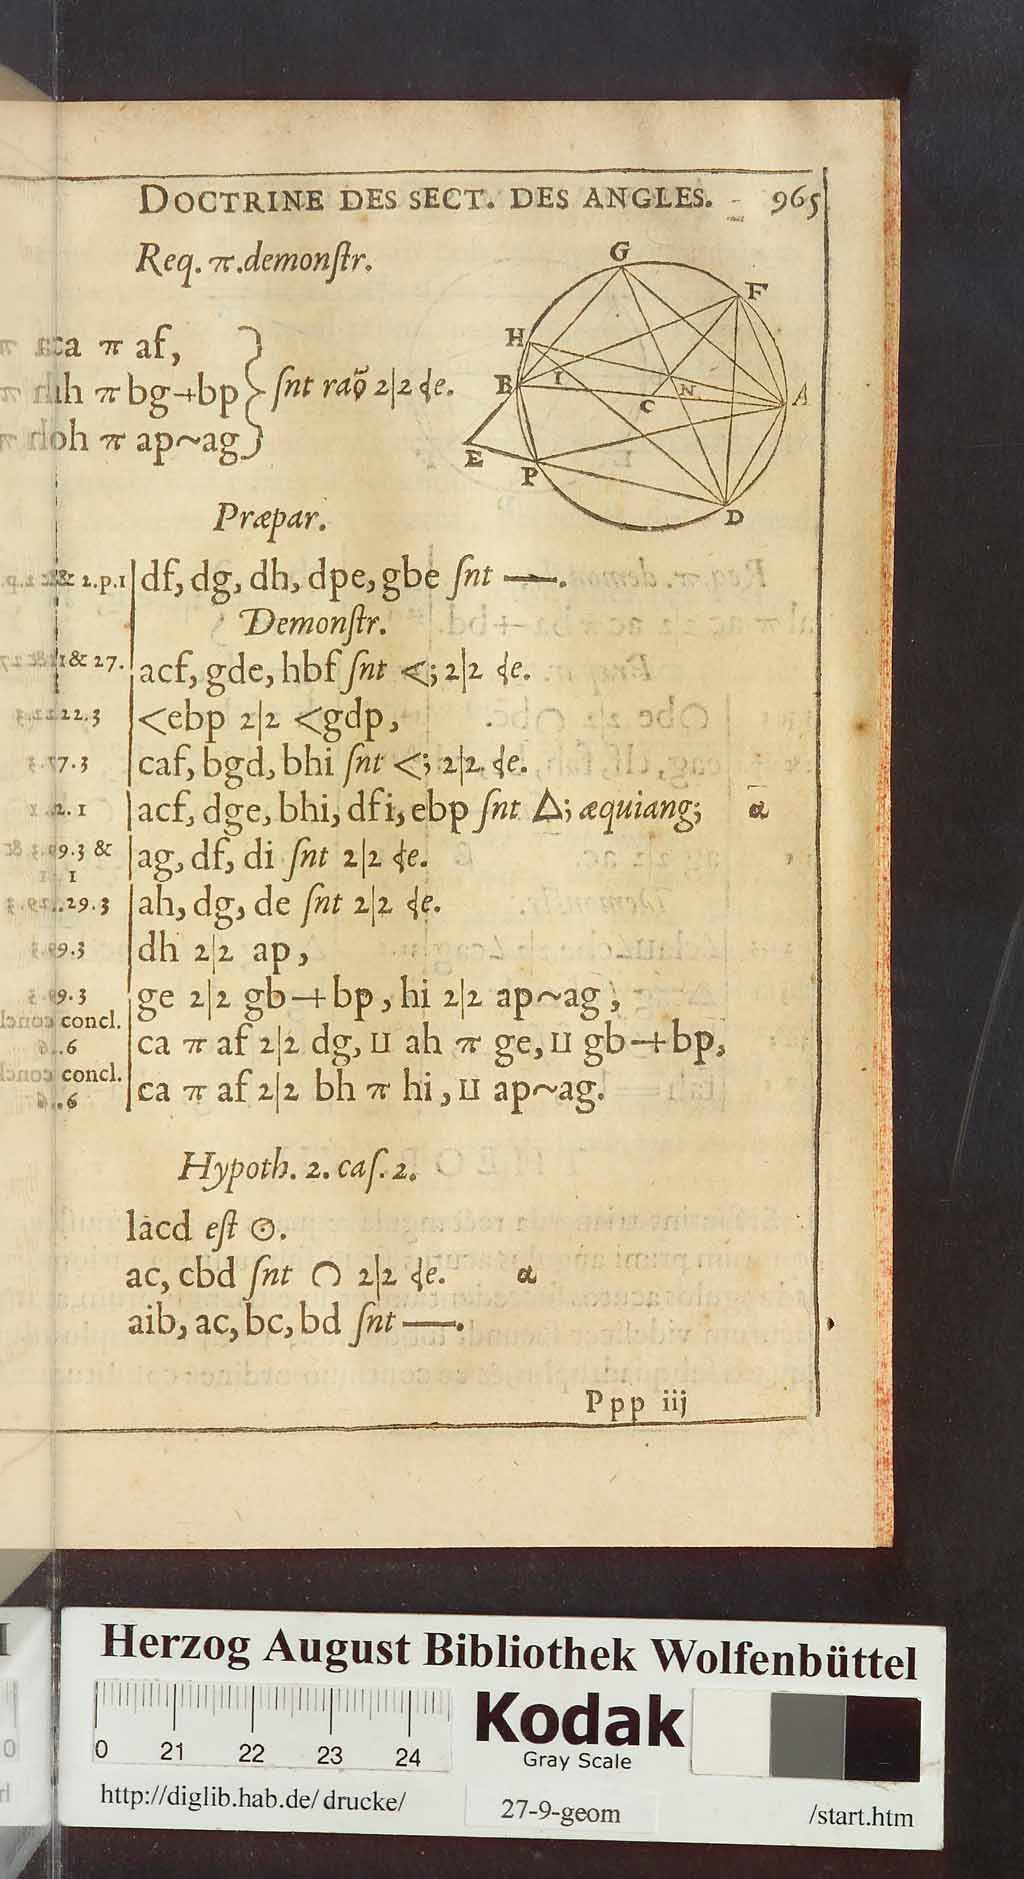 DOCTRINE DES SECT. DES ANGLES. 965
Req. π. demonſtr.
ca π af,
π bg+bp } ſnt raō 2|2 de.
oh π ap~ag
G
F
H
B
I
N
A
C
E
P
D
Præpar.
& 2.p.1 | df, dg, dh, dpe, gbe ſnt —.
Demonſtr.
1& 27. | acf, gde, hbf ſnt <; 2|2 de.
22.3 | <ebp 2|2 <gdp,
7.3 | caf, bgd, bhi ſnt <; 2|2 de.
2.1 | acf, dge, bhi, dfi, ebp ſnt △; æquiang; α
9.3 & | ag, df, di ſnt 2|2 de.
1
29.3 | ah, dg, de ſnt 2|2 de.
9.3 | dh 2|2 ap,
9.3 | ge 2|2 gb+bp, hi 2|2 ap~ag,
concl.
6 | ca π af 2|2 dg, ⊔ ah π ge, ⊔ gb+bp,
concl.
6 | ca π af 2|2 bh π hi, ⊔ ap~ag.
Hypoth. 2. caſ. 2.
lacd eſt ⊙.
ac, cbd ſnt ⌒ 2|2 de. α
aib, ac, bc, bd ſnt —.
Ppp iij
Herzog August Bibliothek Wolfenbüttel
0 21 22 23 24
Kodak
Gray Scale
http://diglib.hab.de/drucke/ 27-9-geom /start.htm